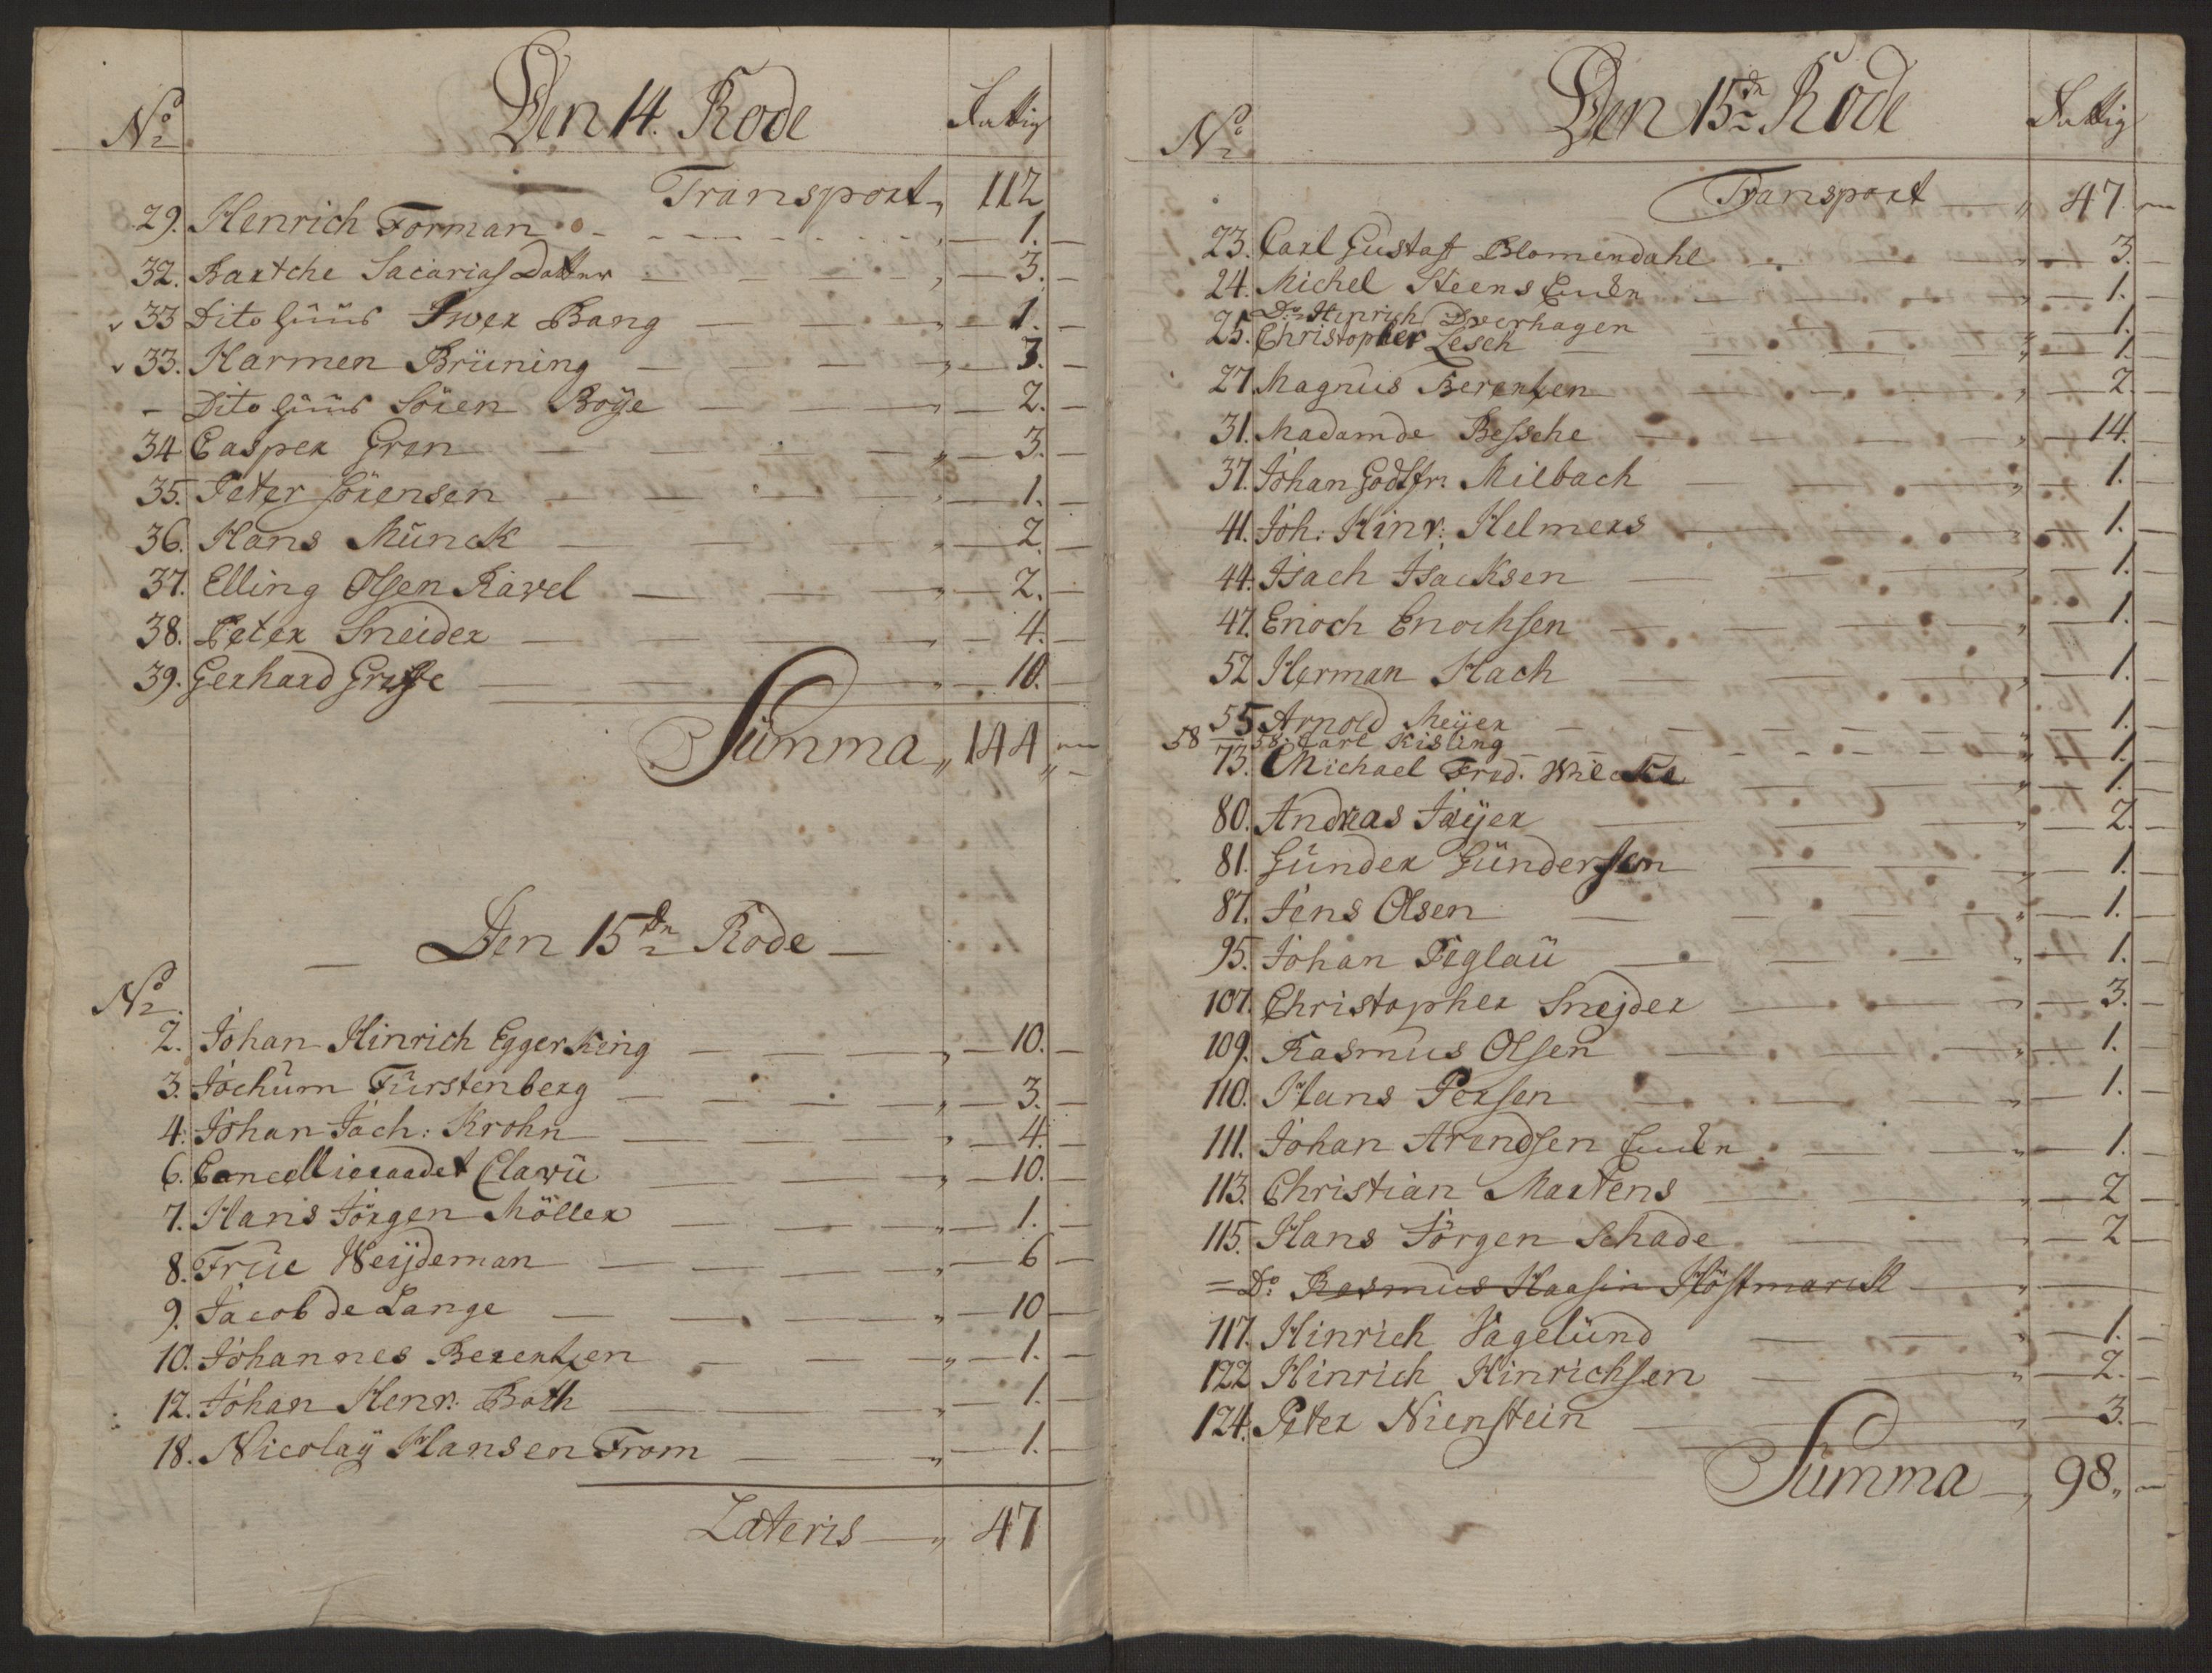 No Den 14. Rode Fattig
Transport „ 112
29. Henrich Forman „ 1.
32. Bartche Sacarias Datter „ 3.
v 33 Dito Huus Iwer Bang „ 1.
v 33. Harmen Brüning „ 3.
- Dito Huus Sören Boÿe „ 2.
34 Casper Gren „ 3.
35. Peter Sörensen „ 1.
36. Hans Munck „ 2.
37. Elling Olsen Ravel „ 2.
38. Peter Sneider „ 4.
39. Gerhard Griffe „ 10.
Summa „ 144
Den 15dn Rode
No
2. Johan Hinrich Eggerking „ 10.
3. Jochum Fürstenberg „ 3.
4. Johan Jach: Krohn „ 4.
6. Cancellieraadet Clawü „ 10.
7. Hans Jörgen Möller „ 1.
8. Früe Weÿdeman „ 6
9. Jacob de Lange „ 10
10. Johannes Berentzen „ 1.
12. Johan Henr. Both „ 1.
18. Nicolaÿ Hansen From „ 1.
Lateris „ 47
No Den 15dn Rode Fattig
Transport „ 47
23. Carl Gustaf Blomendahl „ 3.
24. Michel Steens Enke „ 1.
Do Henrich Dverhagen „ 1.
25. Christopher Lesch „ 1.
27 Magnus Berentzen „ 2.
31. Madam de Bessche „ 14.
37. Johan Godtfr. Milbach „ 1.
41. Joh: Hinr. Helmers „ 1.
44. Isach Isacksen „ 1.
47. Enoch Enochsen „ 1.
52 Herman Hach „ 1.
55 Arnold Meÿer „ 1.
58 58. Carl Kisling „ 1.
73. Michael Fred. Wilcke „ 1.
80. Andreas Jaÿer „ 2.
81. Gunder Gundersen „ 1.
87. Jens Olsen „ 1.
95. Johan Teglaü „ 1.
107. Christopher Snejder „ 3.
109. Rasmus Olsen „ 1.
110. Hans Persen „ 1.
111. Johan Arendsen Enke „ 1.
113. Christian Martens „ 2
115. Hans Jörgen Schade „ 2
= Do: Rasmus Haasin Höstmarck „
117. Hinrich Vagelünd „ 1.
122 Hinrich Hinrichsen „ 2.
124. Peter Nienstein „ 3.
Summa „ 98„